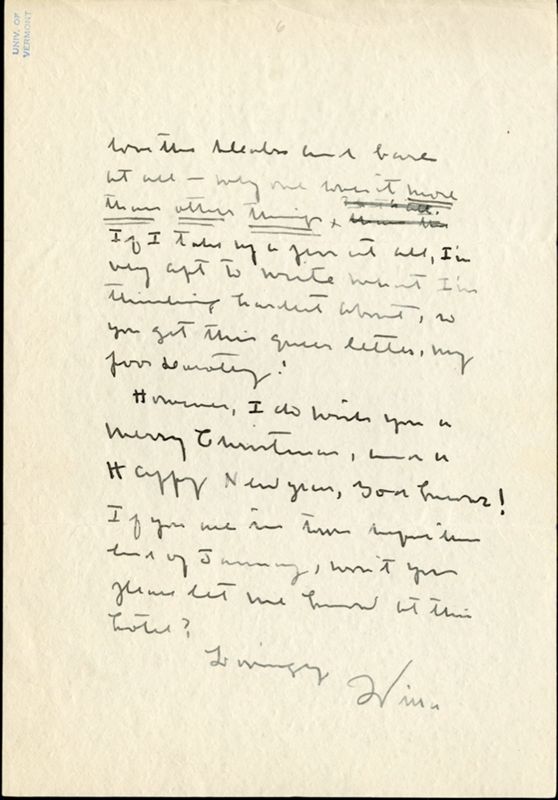 UNIV. OF
VERMONT
6
at all – why one loves it more
than other things
If I take up a pen at all, I'm
very apt to write what I'm
thinking hardest about, so
you get this queer letter, my
poor Dorothy!
However, I do wish you a
Merry Christmas, and a
Happy New year, God knows!
If you are in town the
end of January, won't you
please let me know at this
hotel?
Lovingly
Willa